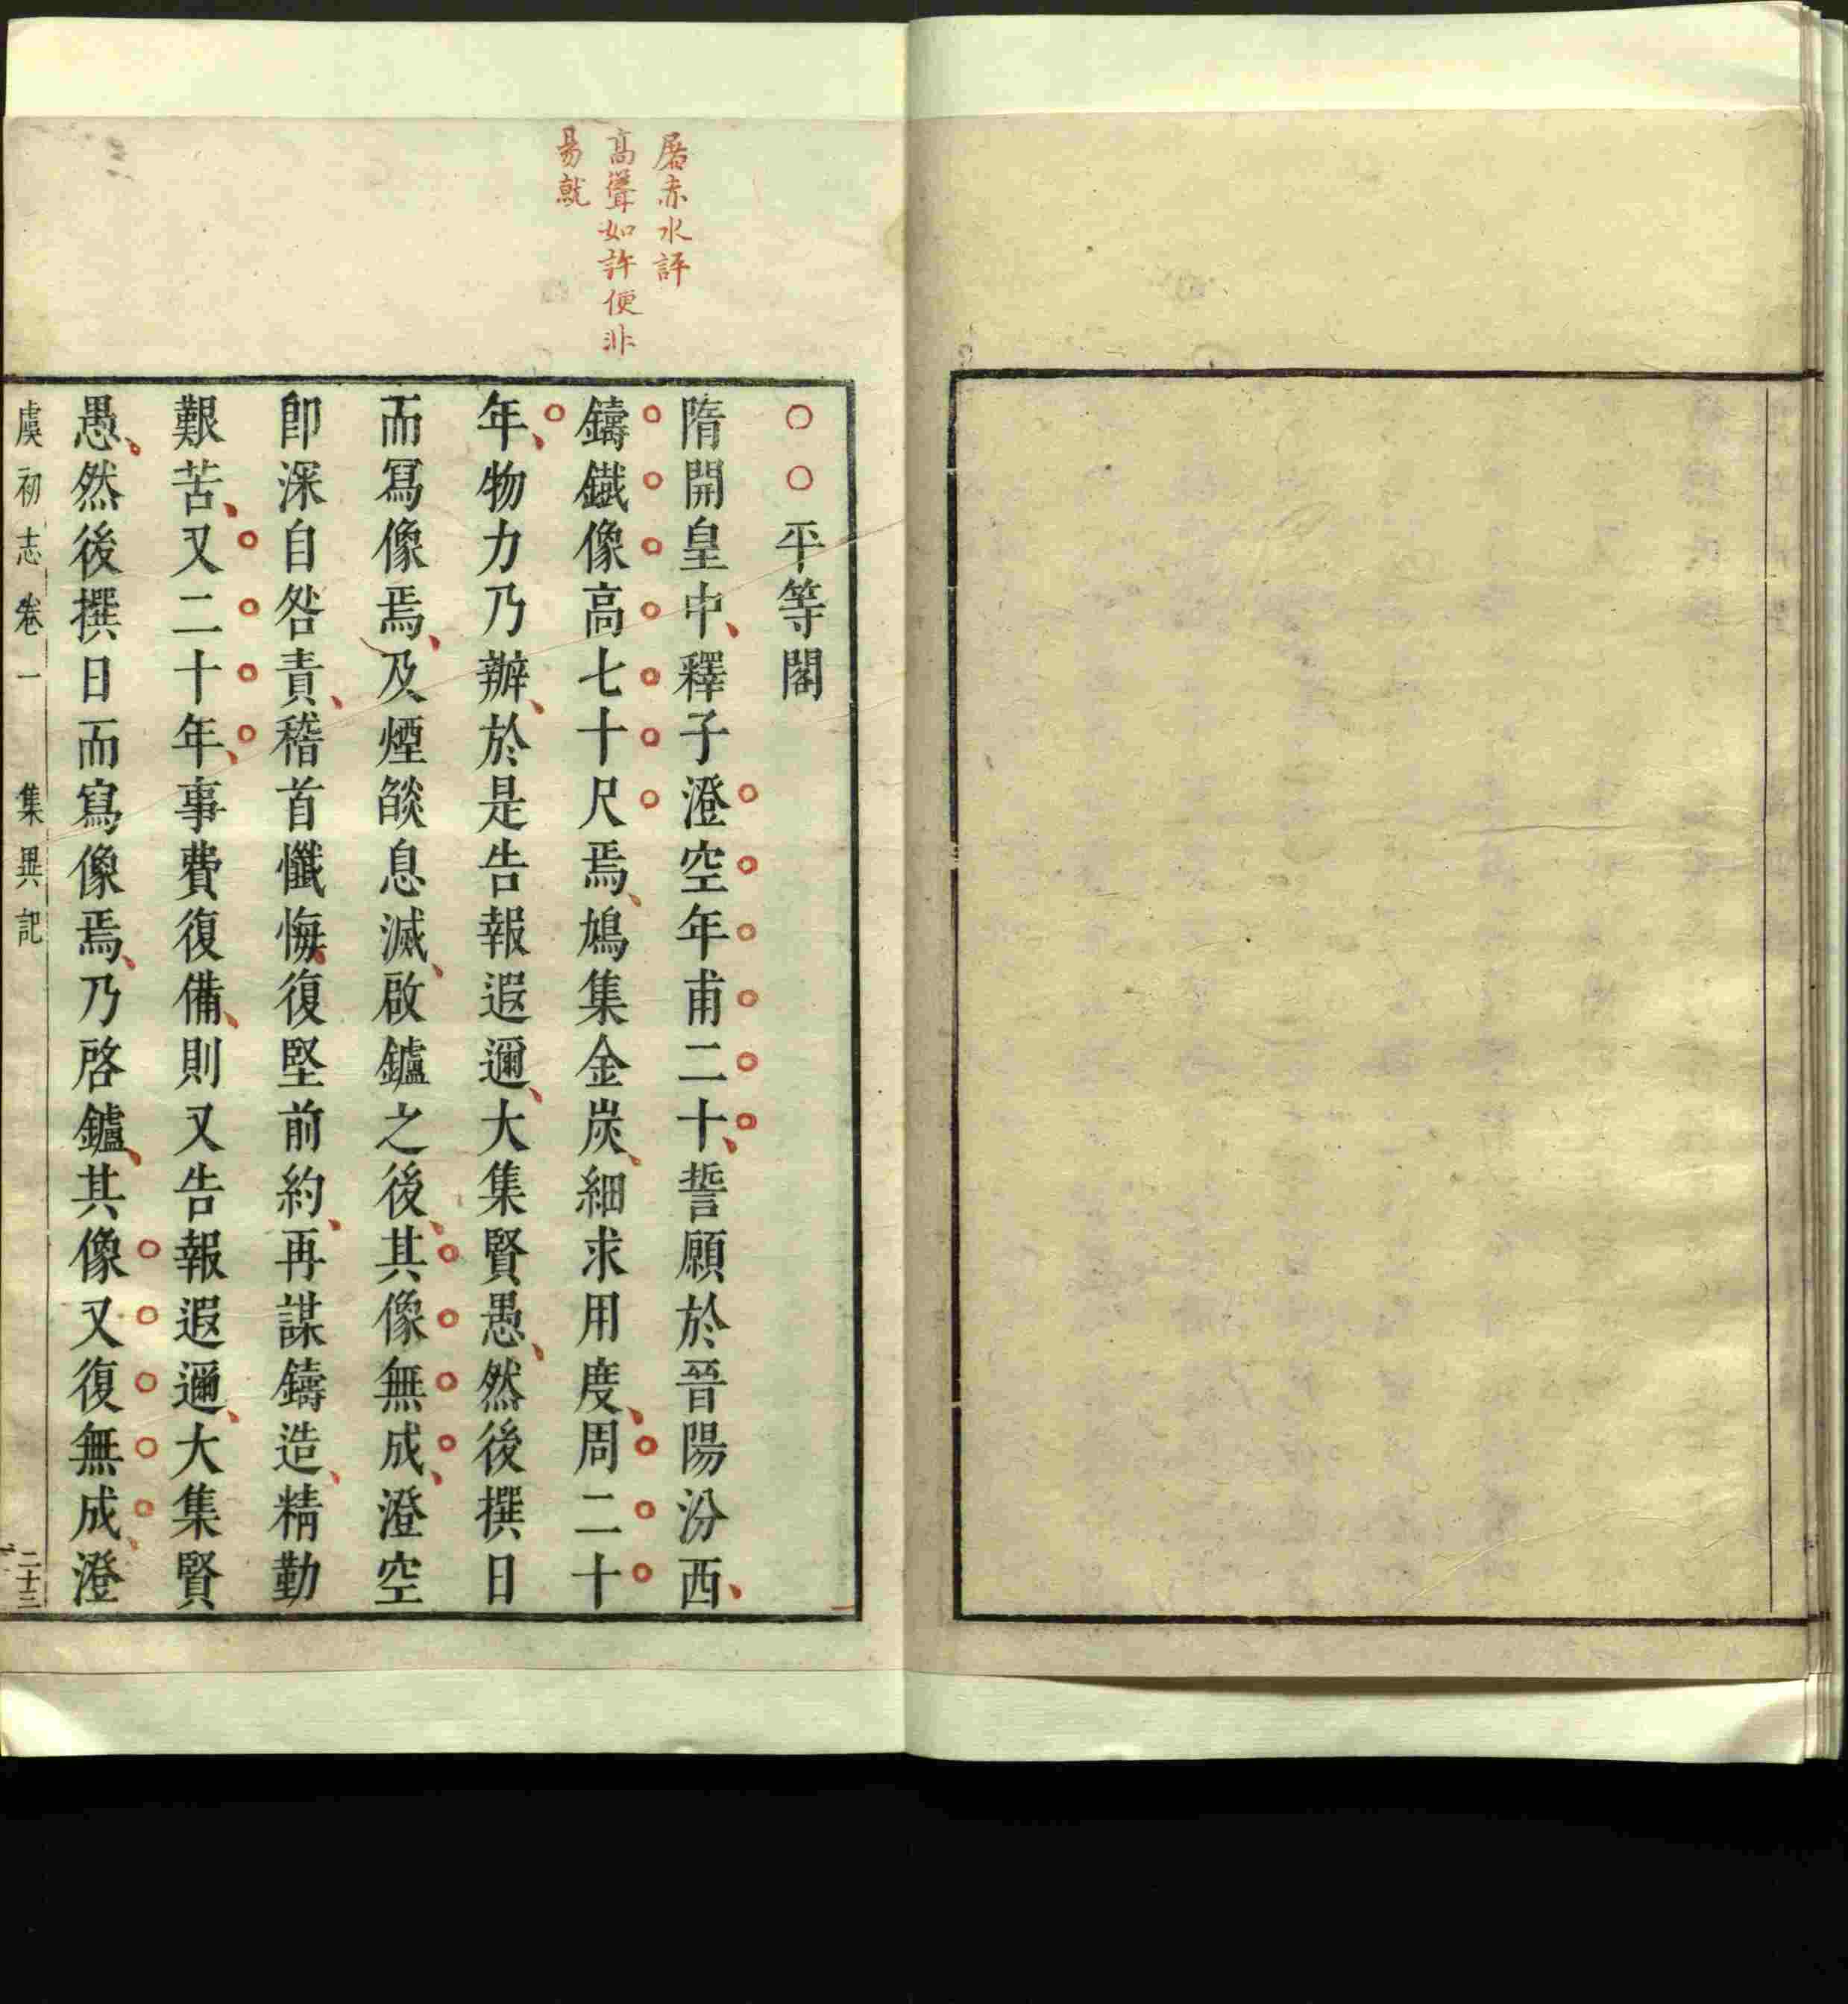 屠赤水評
高聳如許便非
易就
○○平等閣
隋開皇中釋子澄空年甫二十誓願於晉陽汾西
鑄鐵像高七十尺焉鳩集金炭細求用度周二十
年物力乃辦於是告報遐邇大集賢愚然後撰日
而冩像焉及煙燄息滅啟鑪之後其像無成澄空
卽深自咎責稽首懺悔復堅前約再謀鑄造精勤
艱苦又二十年事費復備則又告報遐邇大集賢
愚然後撰日而寫像焉乃啓鑪其像又復無成澄
虞初志 卷一 集異記 二十三